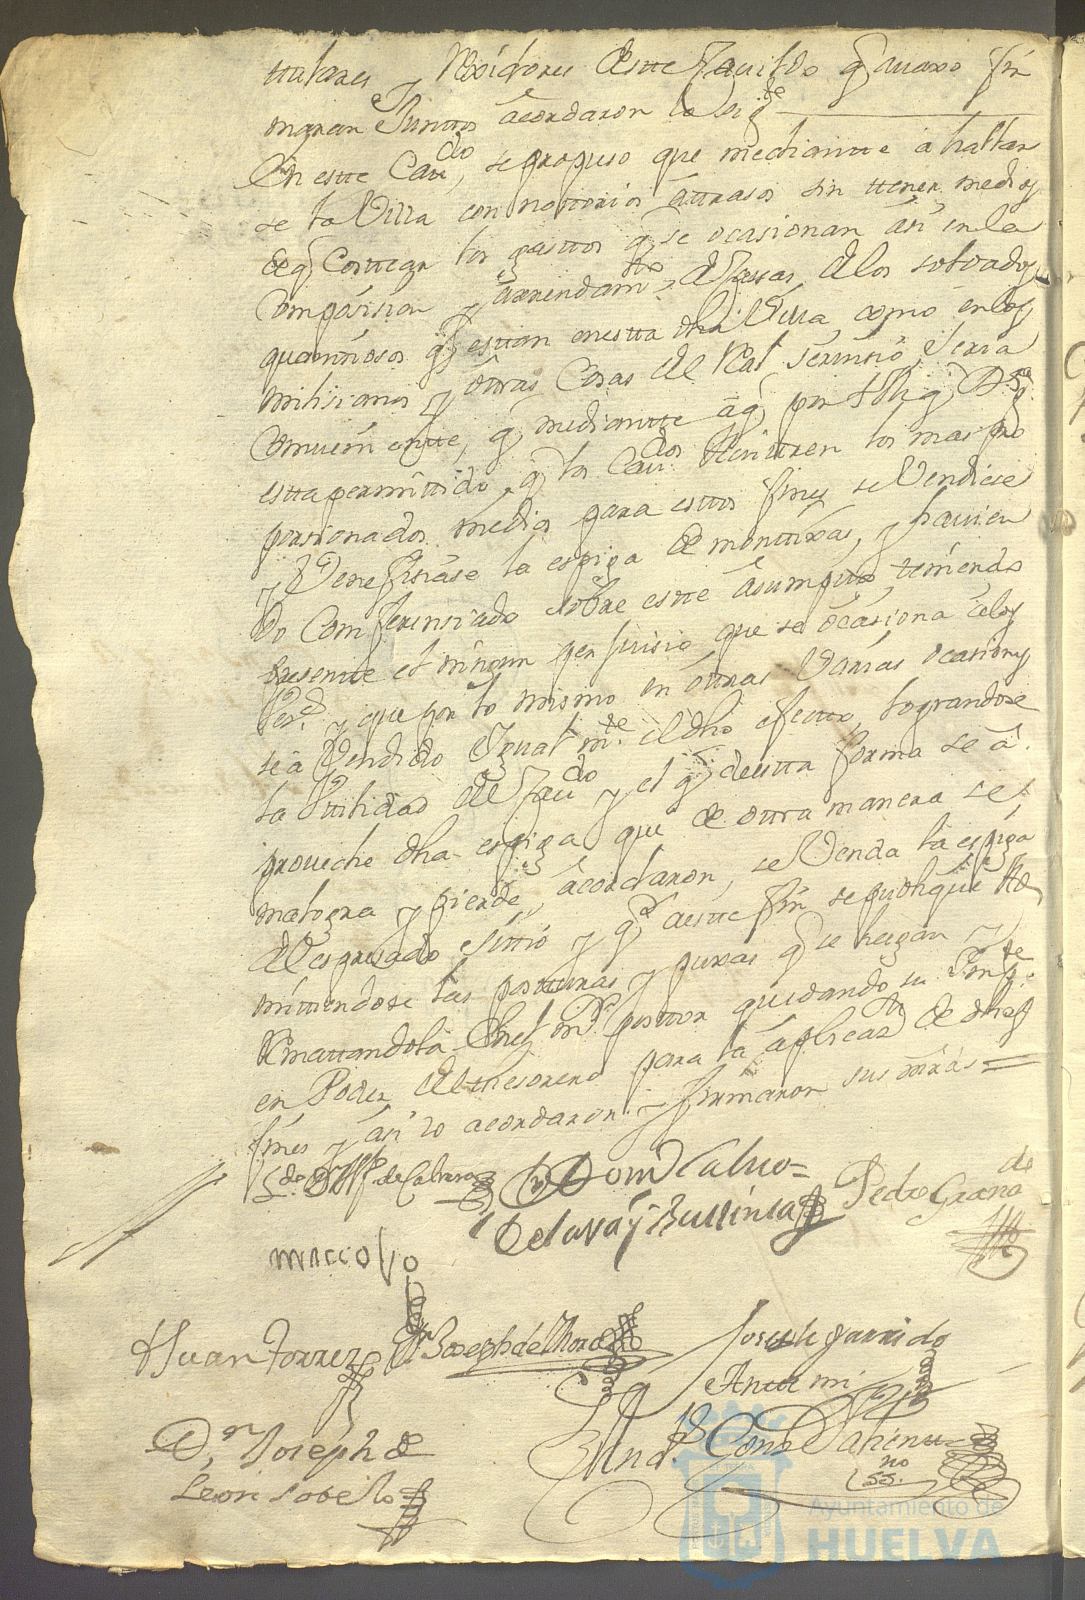 ttulares y Rexidores deste Cauildo q auaxo fir
maran Juntos acordaron lo sigte
En este Caudo, se propuso que mediantte a hallar
se la Villa con notorios attrasos sin ttener medios
de q Costtear los gasttos q se ocasionan asi en la
Compasision y arrendamto de Casas de los soldados
quanttiosos q esttan en estta dha Villa, como en los
milisianos y otras Cosas del Real Seruisio, Seria
Comueniente, q mediantte a q por S Mg D g
estta permittido q los Caudos arvittren los mas pro
porsionados medios para esttos fines se Vendiese
y Venefisiase la espiga de monturas, y hauien
do Comferensiado sobre estte asumptto, teniendo
presentte el ningun perjuisio que se ocasiona a los
y que por lo mismo en ottras Varias ocasiones
se a Vendido Igualmte el dho efectto, lograndose
la Vtilidad del Caudo y el q de estta forma se a
proueche dha espiga que de ottra manera se
malogra y pierde, acordaron, se Venda la espiga
del espresado sittio y q a estte fin se publique Ad
mittiendose las postturas y puxas q se hagan y
Remattandola en el mr posttor quedando su Imptte
en Poder del thesorero para la aplicar a dhos
fines y asi lo acordaron y firmaron sus mrds =
Ldo de Cabrera
Dn Domo Caluo =
De la va y Bullinia
Pedro Grana
de
marcolo
Juan Torres
Dn Joseph del Thoro
Joseph garrido
Dn Joseph de
Leon Sobello
Antte mi
Andrs Gonz
no
ss.
Ayuntamiento de
HUELVA